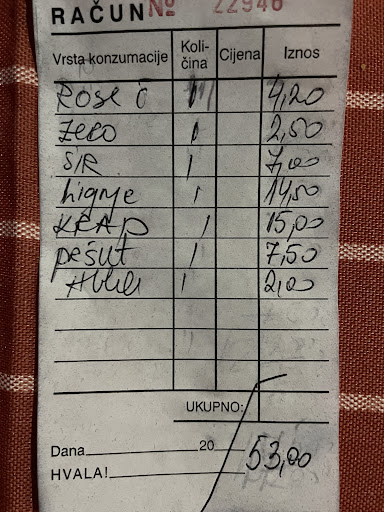 RAČUN № 22946
Vrsta konzumacije Koli-čina Cijena Iznos
Rose 1 4,20
zero 1 2,50
SIR 1 7,00
Lignje 1 14,80
KRAP 1 15,00
pešut 1 7,50
1 2,00
UKUPNO:
Dana 20
53,00
HVALA!